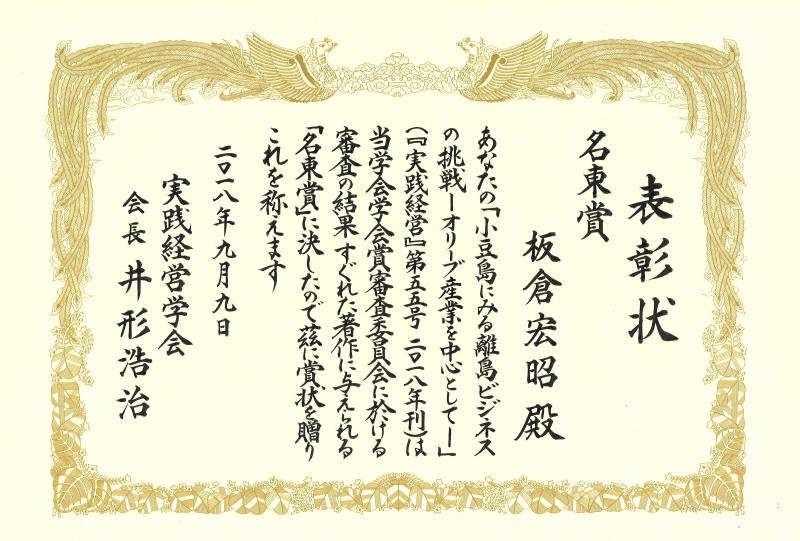 表彰状
名東賞
板倉宏昭殿
あなたの「小豆島にみる離島ビジネス
の挑戦ーオリーブ産業を中心としてー」
(『実践経営』第五五号 二〇一八年刊)は
当学会学会賞審査委員会に於ける
審査の結果 すぐれた著作に与えられる
「名東賞」に決したので茲に賞状を贈り
これを称えます
二〇一八年九月九日
実践経営学会
会長 井形浩治